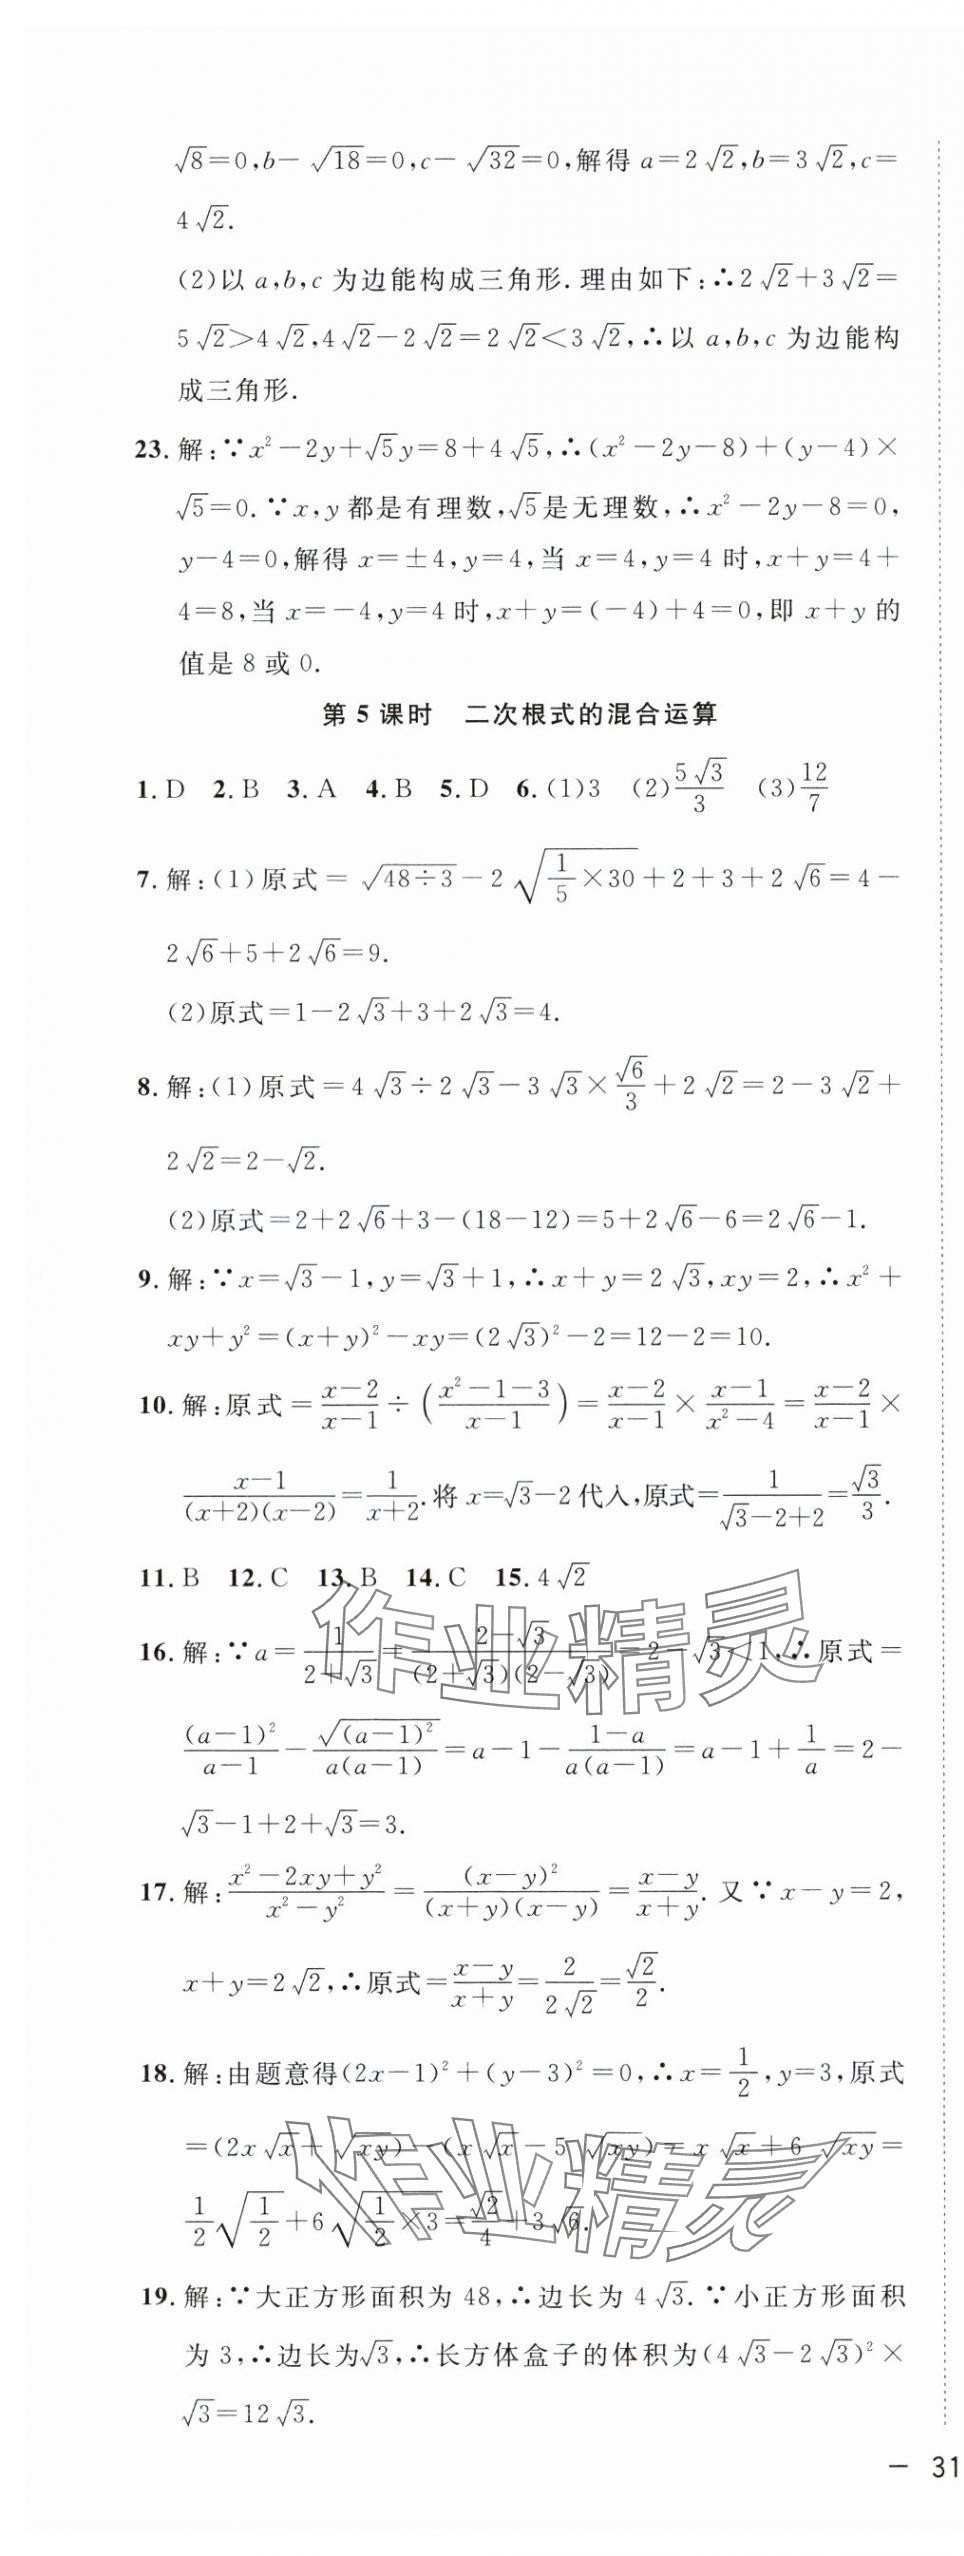 √8=0,b-√18=0,c-√32=0,解得 a=2√2,b=3√2,c=
4√2.
(2)以 a,b,c 为边能构成三角形.理由如下:∴2√2+3√2=
5√2>4√2,4√2-2√2=2√2<3√2,∴以 a,b,c 为边能构
成三角形.
23.解:∵x²-2y+√5y=8+4√5,∴(x²-2y-8)+(y-4)×
√5=0.∵x,y 都是有理数,√5是无理数,∴x²-2y-8=0,
y-4=0,解得 x=±4,y=4,当 x=4,y=4 时,x+y=4+
4=8,当 x=-4,y=4 时,x+y=(-4)+4=0,即 x+y 的
值是 8 或 0.
第 5 课时 二次根式的混合运算
1.D 2.B 3.A 4.B 5.D 6.(1)3 (2)5√3/3 (3)12/7
7.解:(1)原式=√(48÷3)-2√(1/5×30)+2+3+2√6=4-
2√6+5+2√6=9.
(2)原式=1-2√3+3+2√3=4.
8.解:(1)原式=4√3÷2√3-3√3×√6/3+2√2=2-3√2+
2√2=2-√2.
(2)原式=2+2√6+3-(18-12)=5+2√6-6=2√6-1.
9.解:∵x=√3-1,y=√3+1,∴x+y=2√3,xy=2,∴x²+
xy+y²=(x+y)²-xy=(2√3)²-2=12-2=10.
10.解:原式=(x-2)/(x-1)÷((x²-1-3)/(x-1))=(x-2)/(x-1)×(x-1)/(x²-4)=(x-2)/(x-1)×
(x-1)/((x+2)(x-2))=1/(x+2).将 x=√3-2代入,原式=1/(√3-2+2)=√3/3.
11.B 12.C 13.B 14.C 15.4√2
16.解:∵a=1/(2+√3)=(2-√3)/((2+√3)(2-√3))=2-√3<1,∴原式=
(a-1)²/(a-1)-√((a-1)²)/(a(a-1))=a-1-(1-a)/(a(a-1))=a-1+1/a=2-
√3-1+2+√3=3.
17.解:(x²-2xy+y²)/(x²-y²)=(x-y)²/((x+y)(x-y))=(x-y)/(x+y).又∵x-y=2,
x+y=2√2,∴原式=(x-y)/(x+y)=2/(2√2)=√2/2.
18.解:由题意得(2x-1)²+(y-3)²=0,∴x=1/2,y=3,原式
=(2x√x+√xy)-(x√x-5√xy)=x√x+6√xy=
1/2√(1/2)+6√(1/2×3)=√2/4+3√6.
19.解:∵大正方形面积为 48,∴边长为 4√3.∵小正方形面积
为 3,∴边长为√3,∴长方体盒子的体积为(4√3-2√3)²×
√3=12√3.
— 31
作业精灵
作业精灵